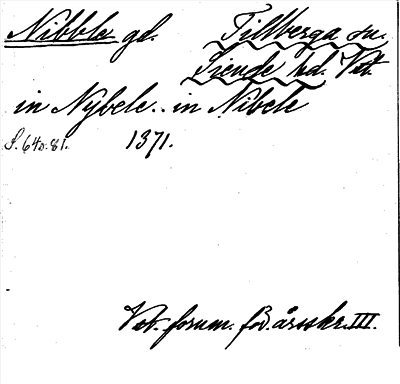 Nibble gd. Tillberga sn.
Siende hd. Vst.
in Nybele.. in Nibele
S. 640:81. 1371.
Vst. fornm. för. årsskr. III.